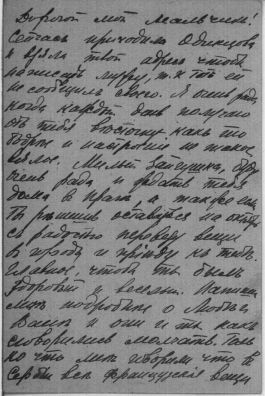 Дорогой мой мальчик!
Сейчас приходила Одинцова
и взяла твой адрес чтобы
написать мужу, т.к. тот ей
не сообщил своего. Я очень рада,
когда каждый день получаю
от тебя весточку, как-то
бодрее и настроение не такое
вялое. Милый зайчишка, буду
очень рада и ждать тебя
дома и
ты решишь оставаться на
с радостью перевезу вещи
в город и приеду к тебе.
Главное, чтобы ты был
здоровый и веселый. Напиши
мне подробнее о
и они и ты как
сговорились молчать. Только
что мне говорили что в
все французские вещи